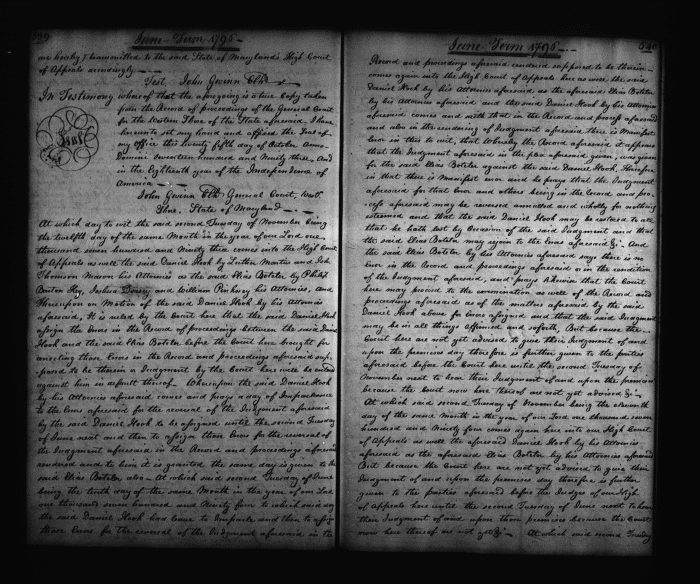 539
June Term 1795
are hereby transmitted to the said State of Maryland's High Court
of Appeals accordingly
Test. John Gwinn Clk.
In Testimony whereof that the aforegoing is a true Copy taken
from the Record of proceedings of the General Court
for the Western Shore of the State aforesaid, I have
hereunto set my hand and affixed the Seal of
my office this twenty fifth day of October Anno
Domini Seventeen hundred and Ninety three, And
in the Eighteenth year of the Independence of
America
Seal
John Gwinn Clk General Court, West.
Shore, State of Maryland
At which day to wit the said second Tuesday of November being
the twelfth day of the same Month in the year of our Lord one
thousand seven hundred and Ninety three comes into the High Court
of Appeals as well the said Daniel Hook by Luther Martin and Joh
Thomson Mason his Attornies as the said Elias Boteler by Philip
Barton Key, Joshua Dorsey and William Pinkney his Attornies, And
Thereupon on Motion of the said Daniel Hook by his Attornies
aforesaid, It is ruled by the Court here that the said Daniel Hook
assign the Errors in the Record of proceedings between the said Daniel
Hook and the said Elias Boteler before the Court here brought for
correcting those Errors in the Record and proceedings aforesaid sup-
posed to be therein or Judgment by the Court here will be entered
against him on default thereof Whereupon the said Daniel Hook
by his Attornies aforesaid comes and prays a day of Imparlance
to the Errors aforesaid for the reversal of the Judgment aforesaid
by the said Daniel Hook to be assigned until the second Tuesday
of June next and then to assign those Errors for the reversal of
the Judgment aforesaid in the Record and proceedings aforesaid
rendered and to him it is granted the same day is given to the
said Elias Boteler also At which said second Tuesday of June
being the tenth day of the same Month in the year of our Lord
one thousand seven hundred and Ninety four to which said day
the said Daniel Hook had leave to Imparle and then to assign
those Errors for the reversal of the Judgment aforesaid in the
June Term 1795
540
Record and proceedings aforesaid rendered supposed to be therein
comes again into the High Court of Appeals here as well the said
Daniel Hook by his Attornies aforesaid as the aforesaid Elias Boteler
by his Attornies aforesaid and the said Daniel Hook by his Attornies
aforesaid comes and saith that in the Record and process aforesaid
and also in the rendering of Judgment aforesaid there is Manifest
Error in this to wit, that Whereby the Record aforesaid it appears
that the Judgment aforesaid in the plea aforesaid given, was given
for the said Elias Boteler against the said Daniel Hook, Therefore
in that there is Manifest Error and he prays that the Judgment
aforesaid for that Error and others being in the Record and pro-
cess aforesaid may be reversed annulled and wholly for nothing
esteemed and that the said Daniel Hook may be restored to all
that he hath lost by Occasion of the said Judgment and that
the said Elias Boteler may rejoin to the Errors aforesaid &c. And
the said Elias Boteler by his Attornies aforesaid says there is no
Error in the Record and proceedings aforesaid or in the rendition
of the Judgment aforesaid, and prays likewise that the Court
here may proceed to the examination as well of the Record and
proceedings aforesaid as of the matters aforesaid by the said
Daniel Hook above for Errors assigned and that the said Judgment
may be in all things affirmed and soforth, But because the
Court here are not yet advised to give their Judgment of and
upon the premises day therefore is further given to the parties
aforesaid before the Court here until the second Tuesday of
November next to hear their Judgment of and upon the premises
because the Court now here thereof are not yet advised &c.
At which said second Tuesday of November being the eleventh
day of the same Month in the year of our Lord one thousand seven
hundred and Ninety four comes again here into our High Court
of Appeals as well the aforesaid Daniel Hook by his Attornies
aforesaid as the aforesaid Elias Boteler by his Attornies aforesaid
But because the Court here are not yet advised to give their
Judgment of and upon the premises day therefore is further
given to the parties aforesaid before the Judges of our High
of Appeals here until the second Tuesday of June next to hear
their Judgment of and upon those premises because the Court
now here thereof are not yet &c. At which said second Tuesday